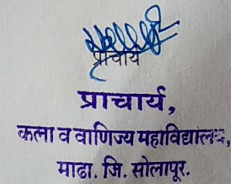 प्राचार्य
प्राचार्य,
कला व वाणिज्य महाविद्यालय,
माढा. जि. सोलापूर.